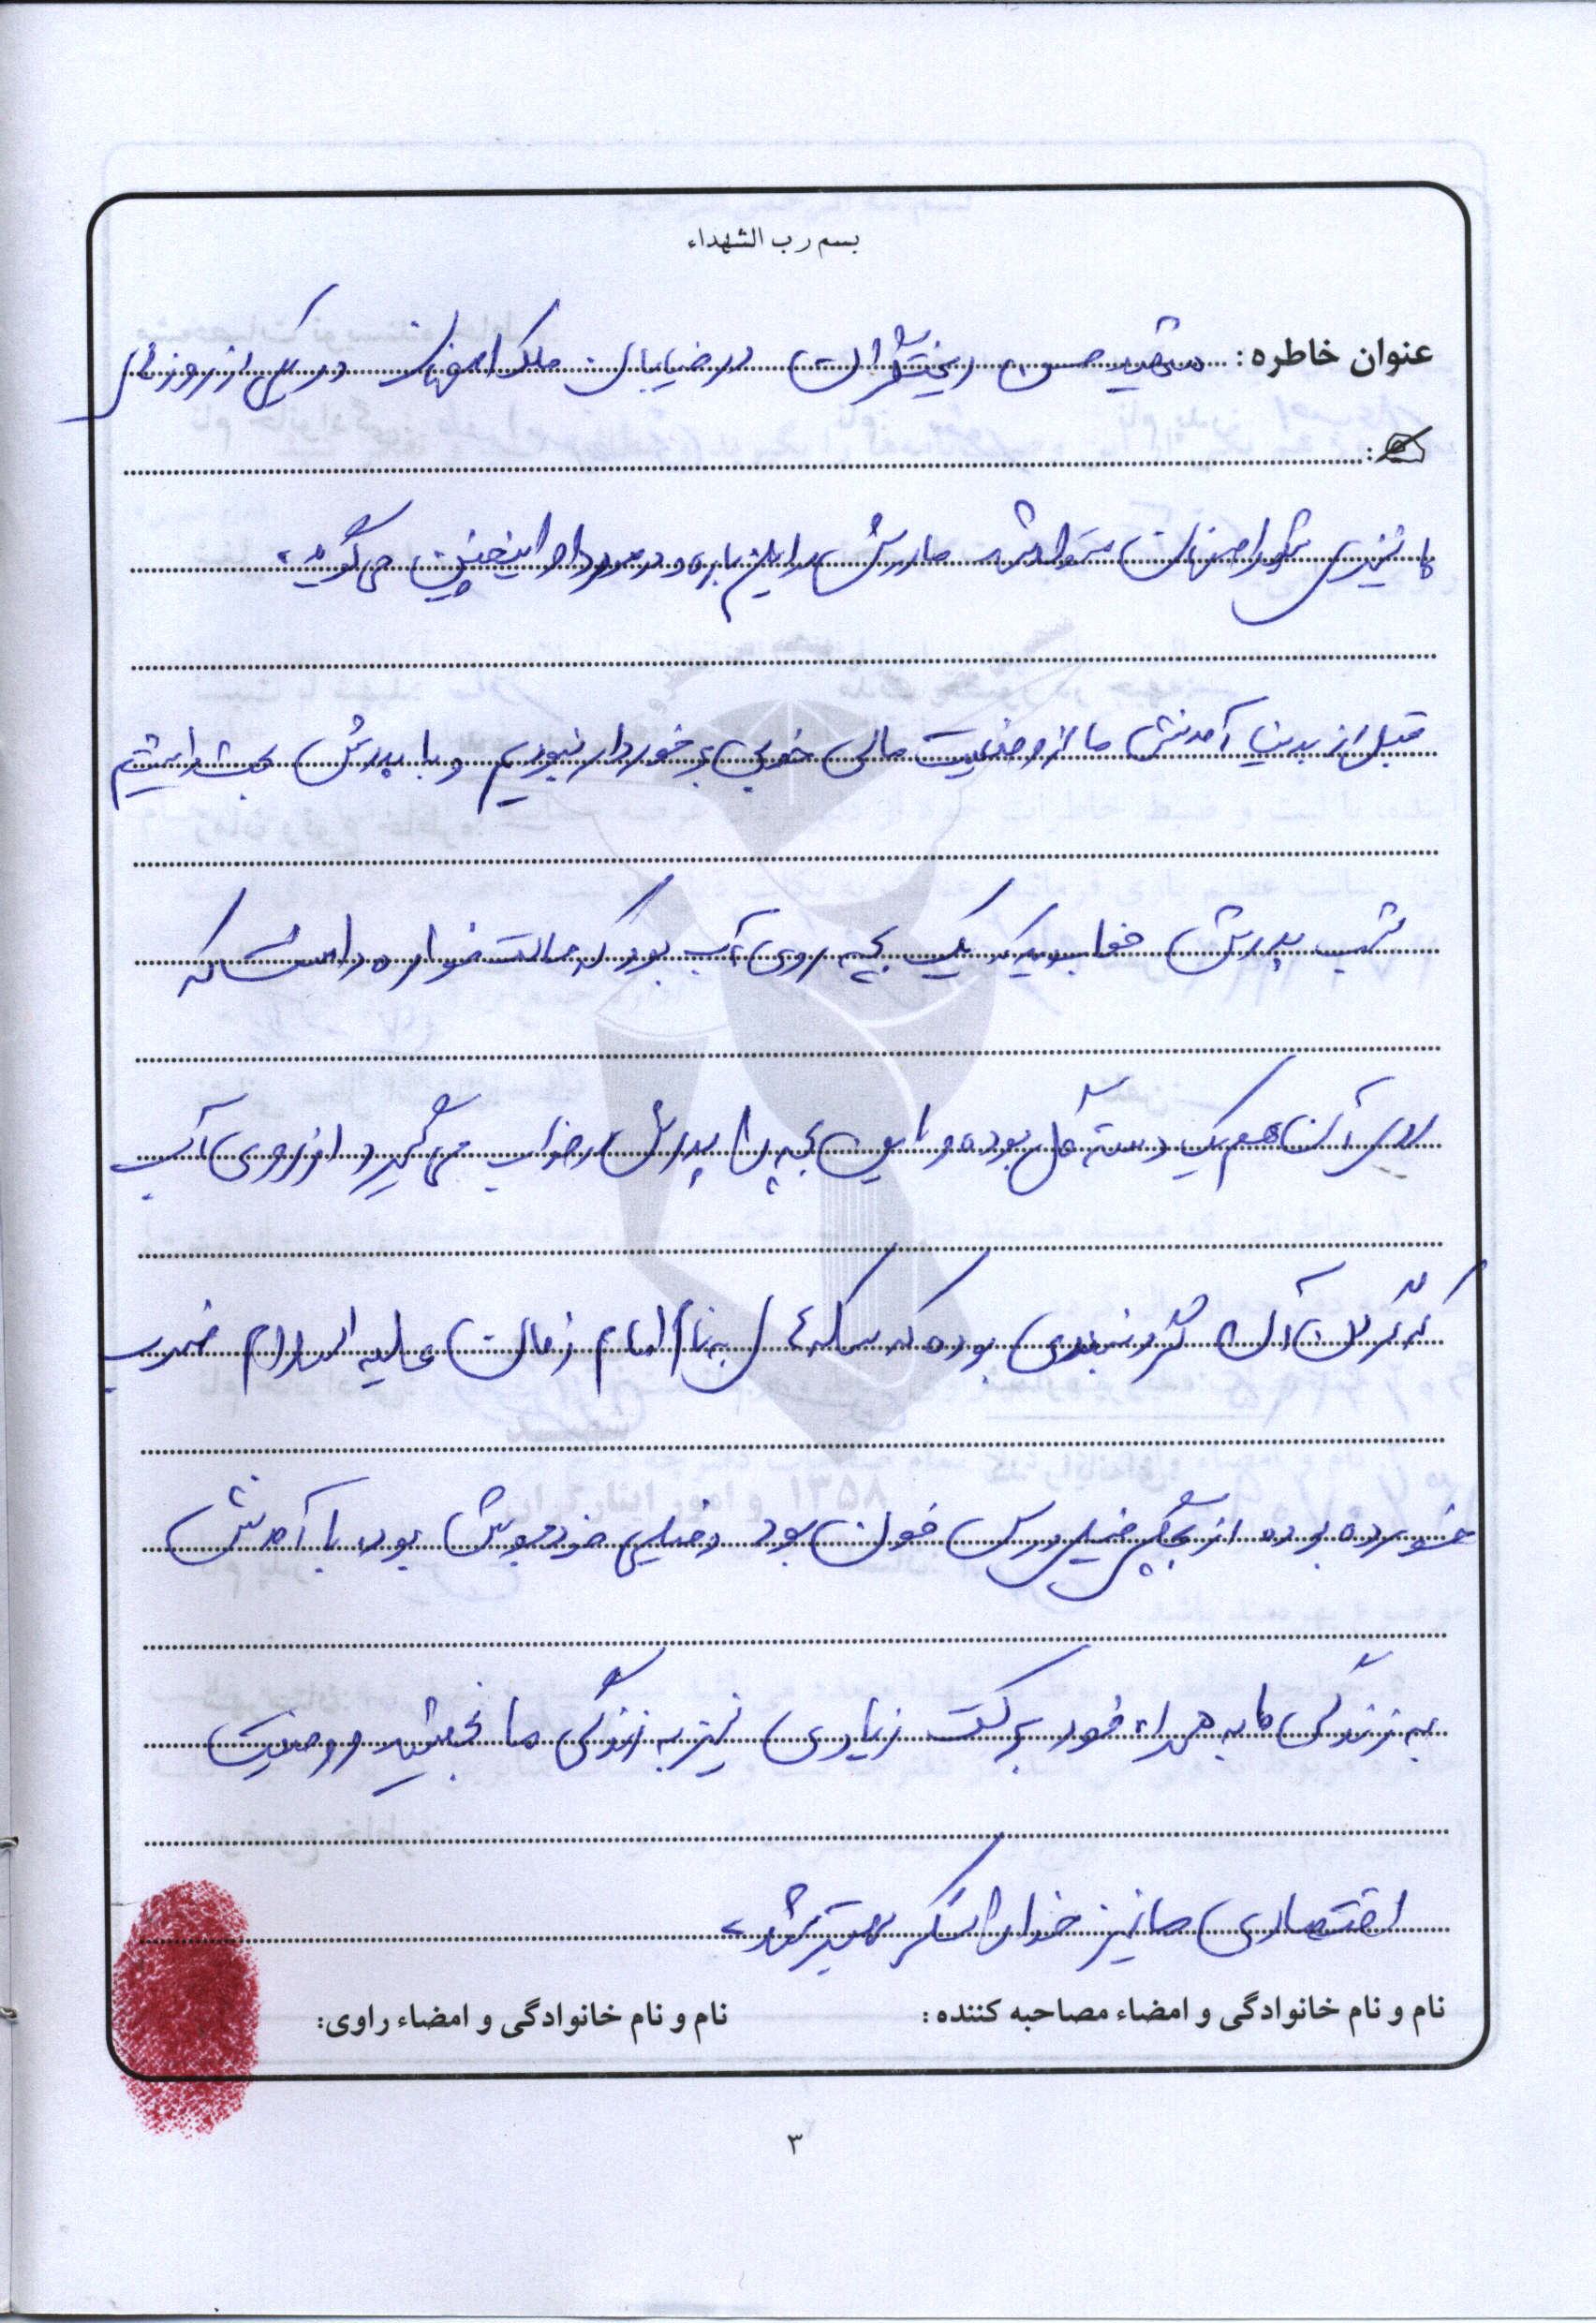 بسم رب الشهداء
عنوان خاطره: شهید حسن ریخته‌گران در خیابان ملک اصفهان در یکی از روزهای
پائیزی شهر اصفهان متولد شد مادرش در این باره و در مورد او اینچنین می گوید،
قبل از بدنیا آمدنش ما از وضعیت مالی خوبی برخوردار نبودیم و با پدرش بحث داشتیم
شب پدرش خواب دید که یک بچه روی آب بود که حالت فواره داشت که
روی آن هم یک دسته گل بوده و این بچه را پدرش در خواب می گیرد از روی آب
که در گردن آن گردنبندی بوده که سکه ای به نام امام زمان علیه السلام ضرب
خورده بوده از بچگی خیلی درس خوان بود و خیلی خودجوش بود، با آمدنش
به زندگی ما به همراه خود برکت زیادی نیز به زندگی ما بخشید و وضعیت
اقتصادی ما نیز خدا را شکر بهتر شد،
نام و نام خانوادگی و امضاء مصاحبه کننده: نام و نام خانوادگی و امضاء راوی:
۳